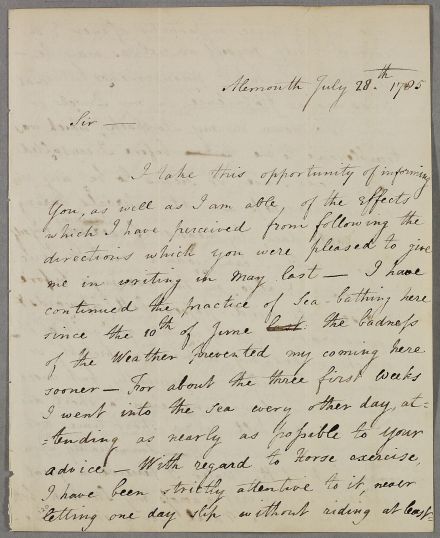 Alemouth July 28.th 1785
Sir —
I take this opportunity of informing
You, as well as I am able, of the Effects
which I have perceived from following the
directions which you were pleased to give
me in writing in May last — I have
continued the practice of Sea bathing here
since the 10th of June last. the badness
of the Weather prevented my coming here
sooner — For about the three first weeks
I went into the sea every other day, at-
-tending as nearly as possible to your
advice — With regard to Horse exercise,
I have been strictly attentive to it, never
letting one day slip without riding at least